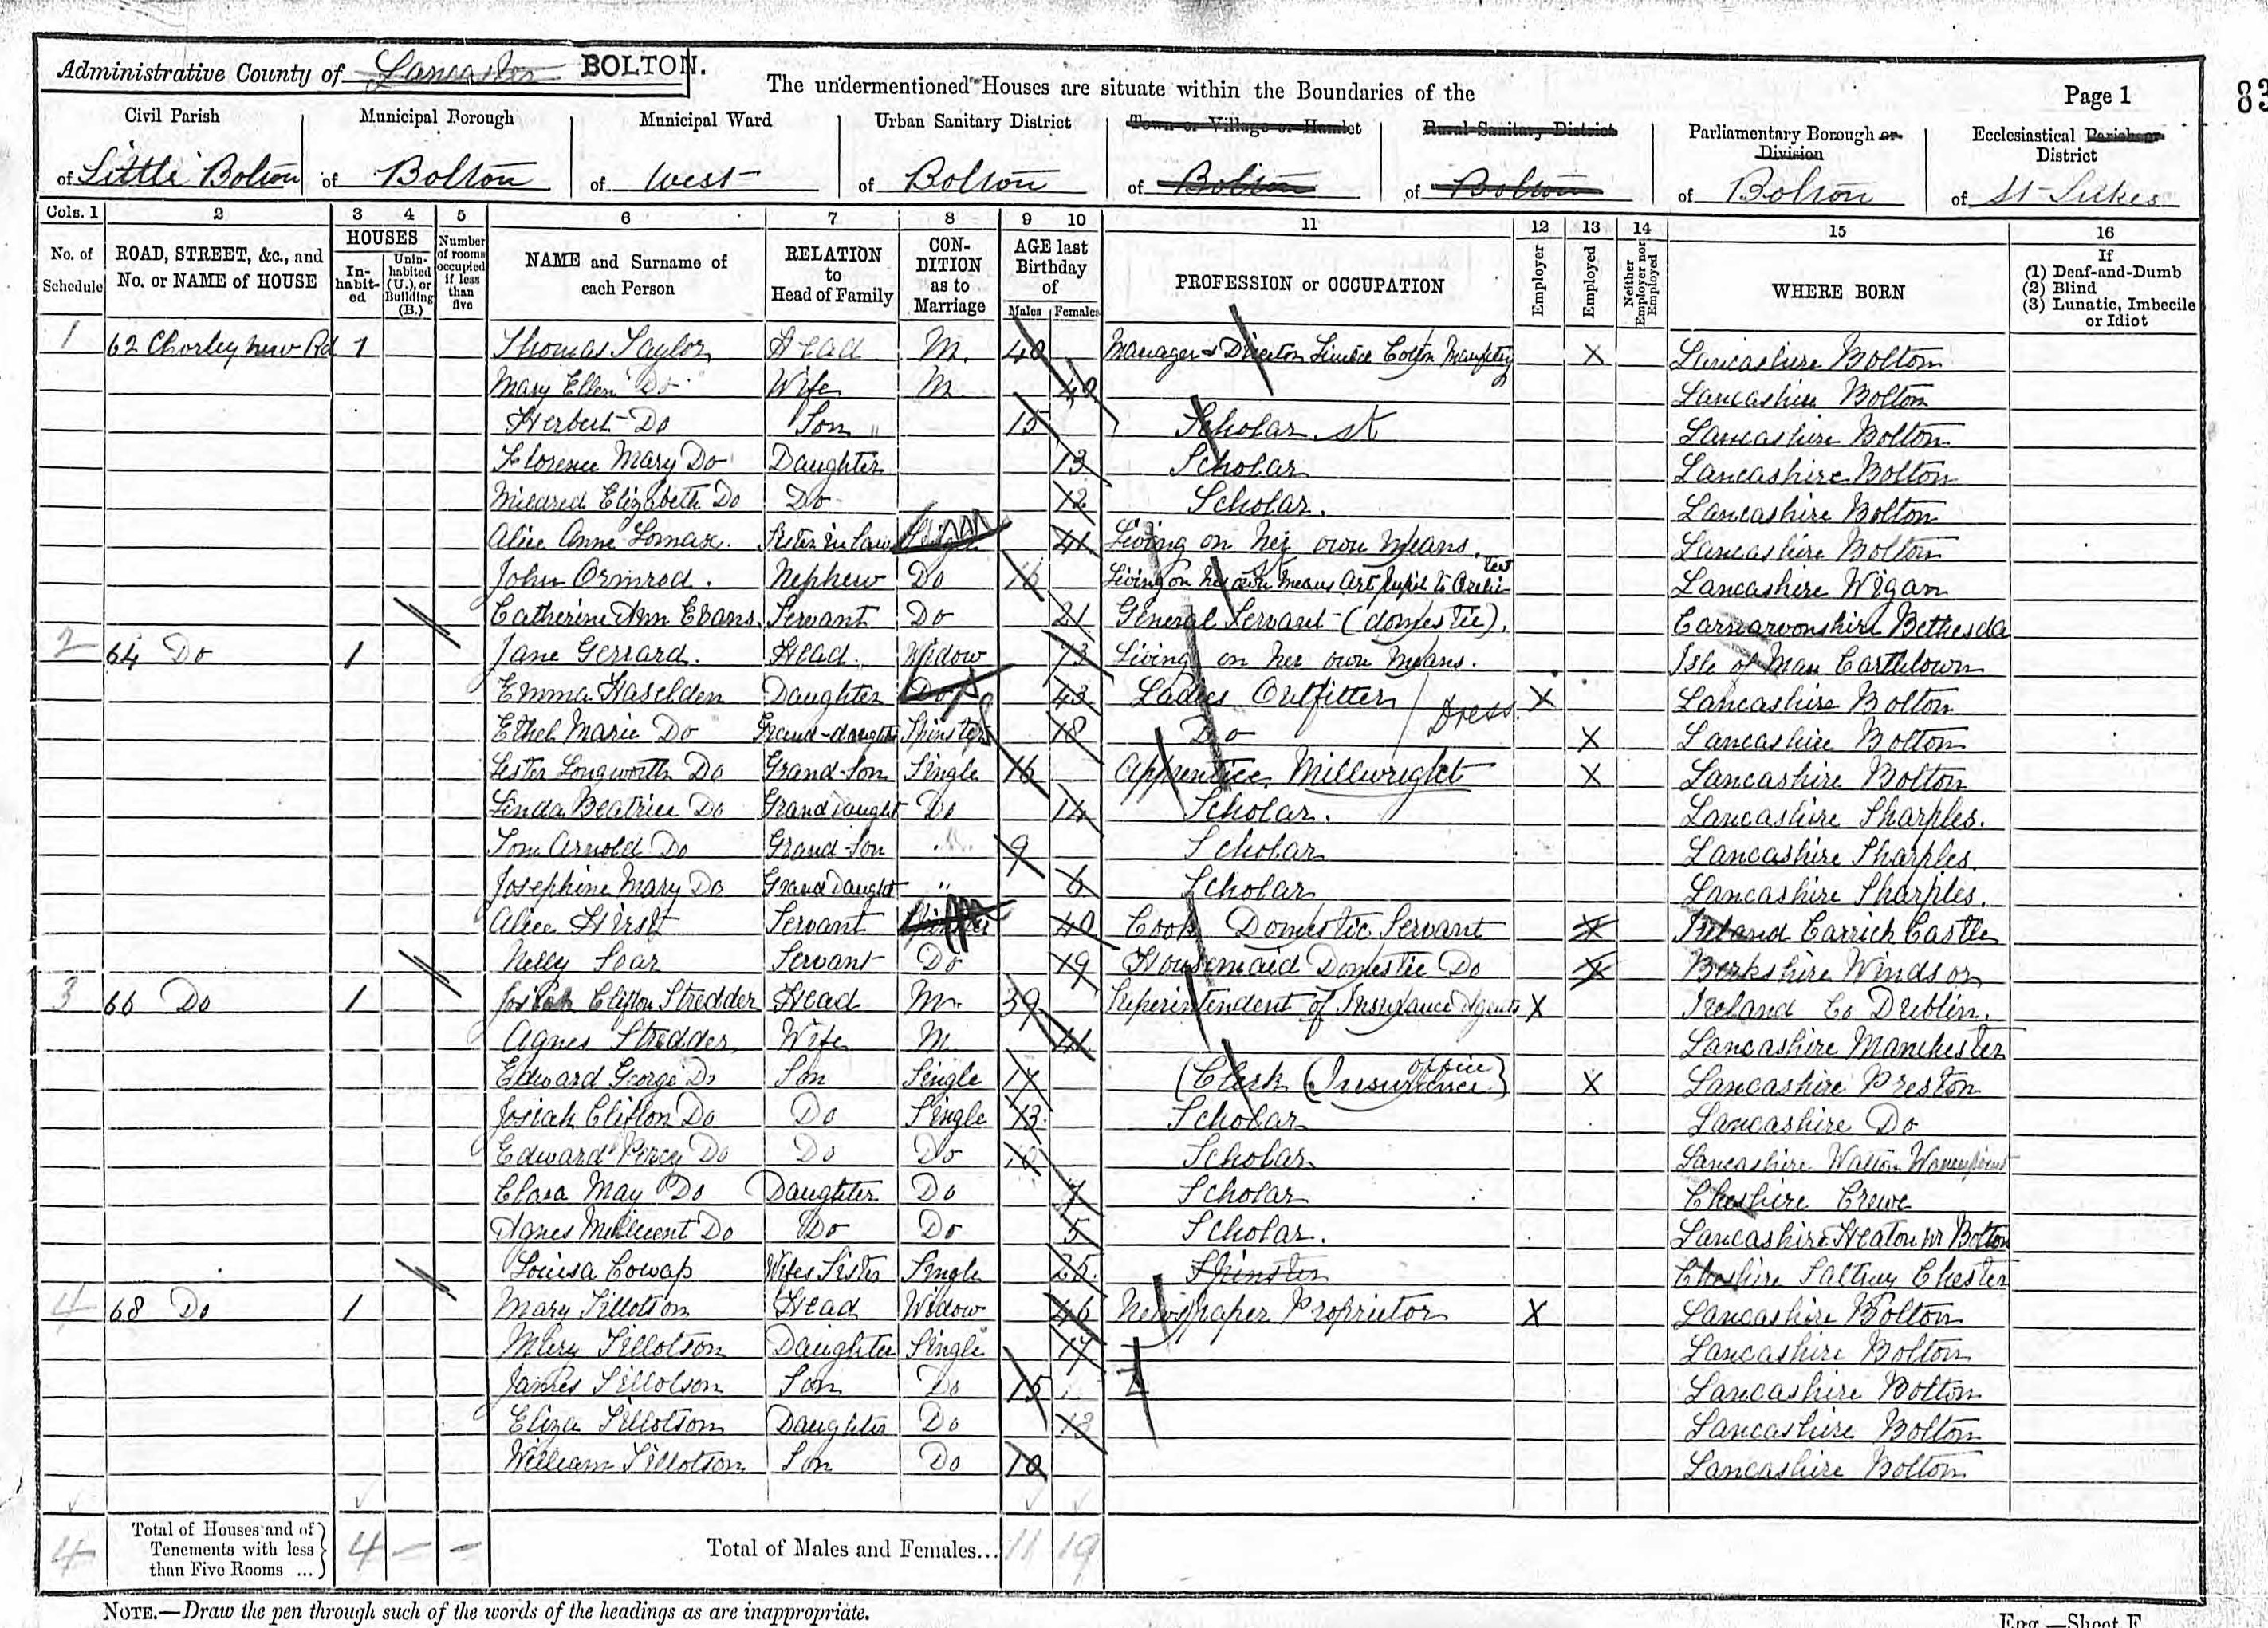 Administrative County of Lancaster BOLTON.
The undermentioned Houses are situate within the Boundaries of the
Page 1
83
Civil Parish Municipal Borough Municipal Ward Urban Sanitary District Town or Village or Hamlet Rural Sanitary District Parliamentary Borough or Division Ecclesiastical Parish or District
of Little Bolton of Bolton of West of Bolton of Bolton of Bolton of Bolton of St Lukes
Cols. 1 2 3 4 5 6 7 8 9 10 11 12 13 14 15 16
No. of Schedule ROAD, STREET, &c., and No. or NAME of HOUSE HOUSES Inhabited Uninhabited (U.), or Building (B.) Number of rooms occupied if less than five NAME and Surname of each Person RELATION to Head of Family CONDITION as to Marriage AGE last Birthday of Males Females PROFESSION or OCCUPATION Employer Employed Neither Employer nor Employed WHERE BORN If (1) Deaf-and-Dumb (2) Blind (3) Lunatic, Imbecile or Idiot
1 62 Chorley new Rd 1 Thomas Taylor Head M. 40 Manager & Director Limited Cotton X Lancashire Bolton
Mary Ellen Do Wife M 40 Lancashire Bolton
Herbert Do Son 15 Scholar Lancashire Bolton
Florence Mary Do Daughter 13 Scholar Lancashire Bolton
Mildred Elizabeth Do Do 12 Scholar. Lancashire Bolton
Alice Anne Lomax. Sister in law 41 Living on her own Means. Lancashire Bolton
John Ormrod. Nephew Do 16 Living on his own means Art pupil to Lancashire Wigan
Catherine Ann Evans. Servant Do 21 General Servant (domestic). Carnarvonshire Bethesda
2 64 Do 1 Jane Gerrard. Head. Widow 73 Living on her own Means. Isle of Man Castletown
Emma Haselden Daughter Do 43 Ladies Outfitter Dress X Lancashire Bolton
Ethel Marie Do Grand-daughter Spinster 18 Do X Lancashire Bolton
Lester Longworth Do Grand-Son Single 16 Apprentice Millwright X Lancashire Bolton
Linda Beatrice Do Grand Daught Do 14 Scholar. Lancashire Sharples.
Tom Arnold Do Grand-Son 9 Scholar Lancashire Sharples.
Josephine Mary Do Grand Daught " 6 Scholar Lancashire Sharples.
Alice Hirst Servant Spinster 40 Cook Domestic Servant X Ireland Carrick Castle
Nelly Soar Servant Do 19 Housemaid Domestic Do X Berkshire Windsor
3 66 Do 1 Josiah Clifton Stredder Head M. 39 Superintendent of Insurance Agents X Ireland Co Dublin.
Agnes Stredder Wife M 41 Lancashire Manchester
Edward George Do Son Single 17 (Clerk (Insurance office) X Lancashire Preston
Josiah Clifton Do Do Single 13 Scholar Lancashire Do
Edward Percy Do Do Do 10 Scholar Lancashire Walton
Clara May Do Daughter Do 7 Scholar Cheshire Crewe
Agnes Millicent Do Do Do 5 Scholar. Lancashire Heaton nr Bolton
Louisa Cowap Wifes Sister Single 25 Spinster Cheshire Saltney Chester
4 68 Do 1 Mary Tillotson Head Widow 46 Newspaper Proprietor X Lancashire Bolton
Mary Tillotson Daughter Single 17 Lancashire Bolton
James Tillotson Son Do 15 Lancashire Bolton
Eliza Tillotson Daughter Do 13 Lancashire Bolton
William Tillotson Son Do 10 Lancashire Bolton
4 Total of Houses and of Tenements with less than Five Rooms ... 4 – – Total of Males and Females... 11 19
NOTE.—Draw the pen through such of the words of the headings as are inappropriate.
Eng.—Sheet E.